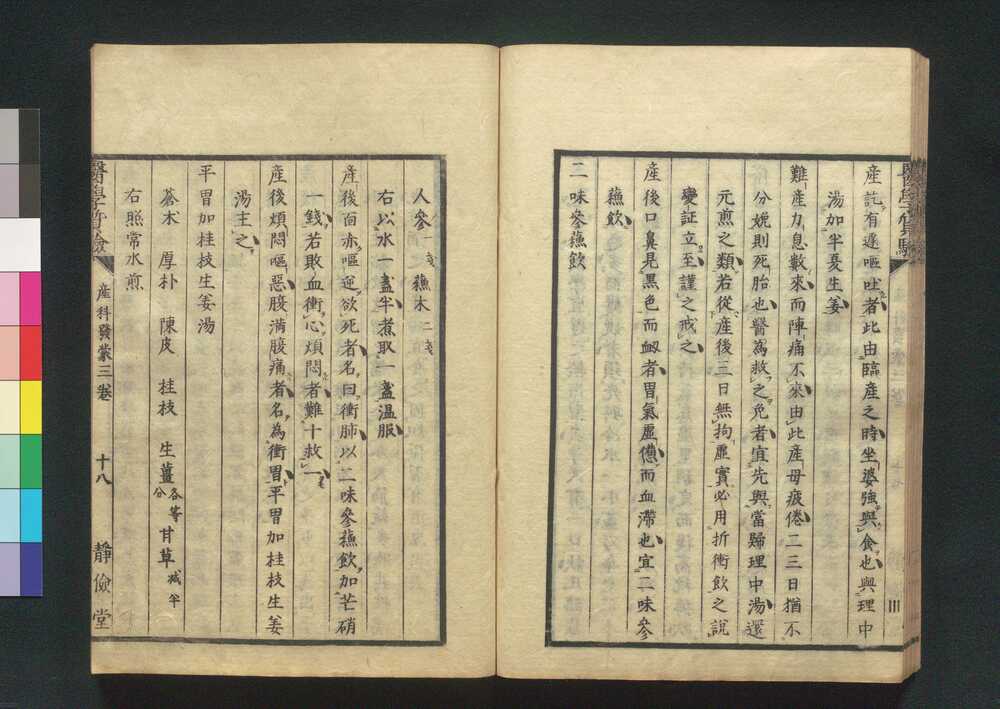 産託有遅嘔吐者此由臨産之時坐婆強與食也與理中
湯加半夏生姜
難産力息數來而陣痛不來由此産母疲倦二三日猶不
分娩則死胎也醫為救之免者宜先與當歸理中湯還
元煎之類若從産後三日無拘虚實必用折衝飲之說
變証立至謹之戒之
産後口鼻見黒色而衂者胃氣虚憊而血滯也宜二味參
蘓飲
二味參蘓飲
人參一戔 蘓木二戔
右以水一盞半煮取一盞温服
産後面赤嘔逆欲死者名曰衝肺以二味參蘓飲加芒硝
一錢若敗血衝心煩悶者難十救一
産後煩悶嘔惡腹満腹痛者名為衝胃平胃加桂枝生姜
湯主之
平胃加桂枝生姜湯
蒼朮 厚朴 陳皮 桂枝 生薑各等分 甘草減半
右㷛常水煎
産科發蒙三卷 十八 靜儉堂